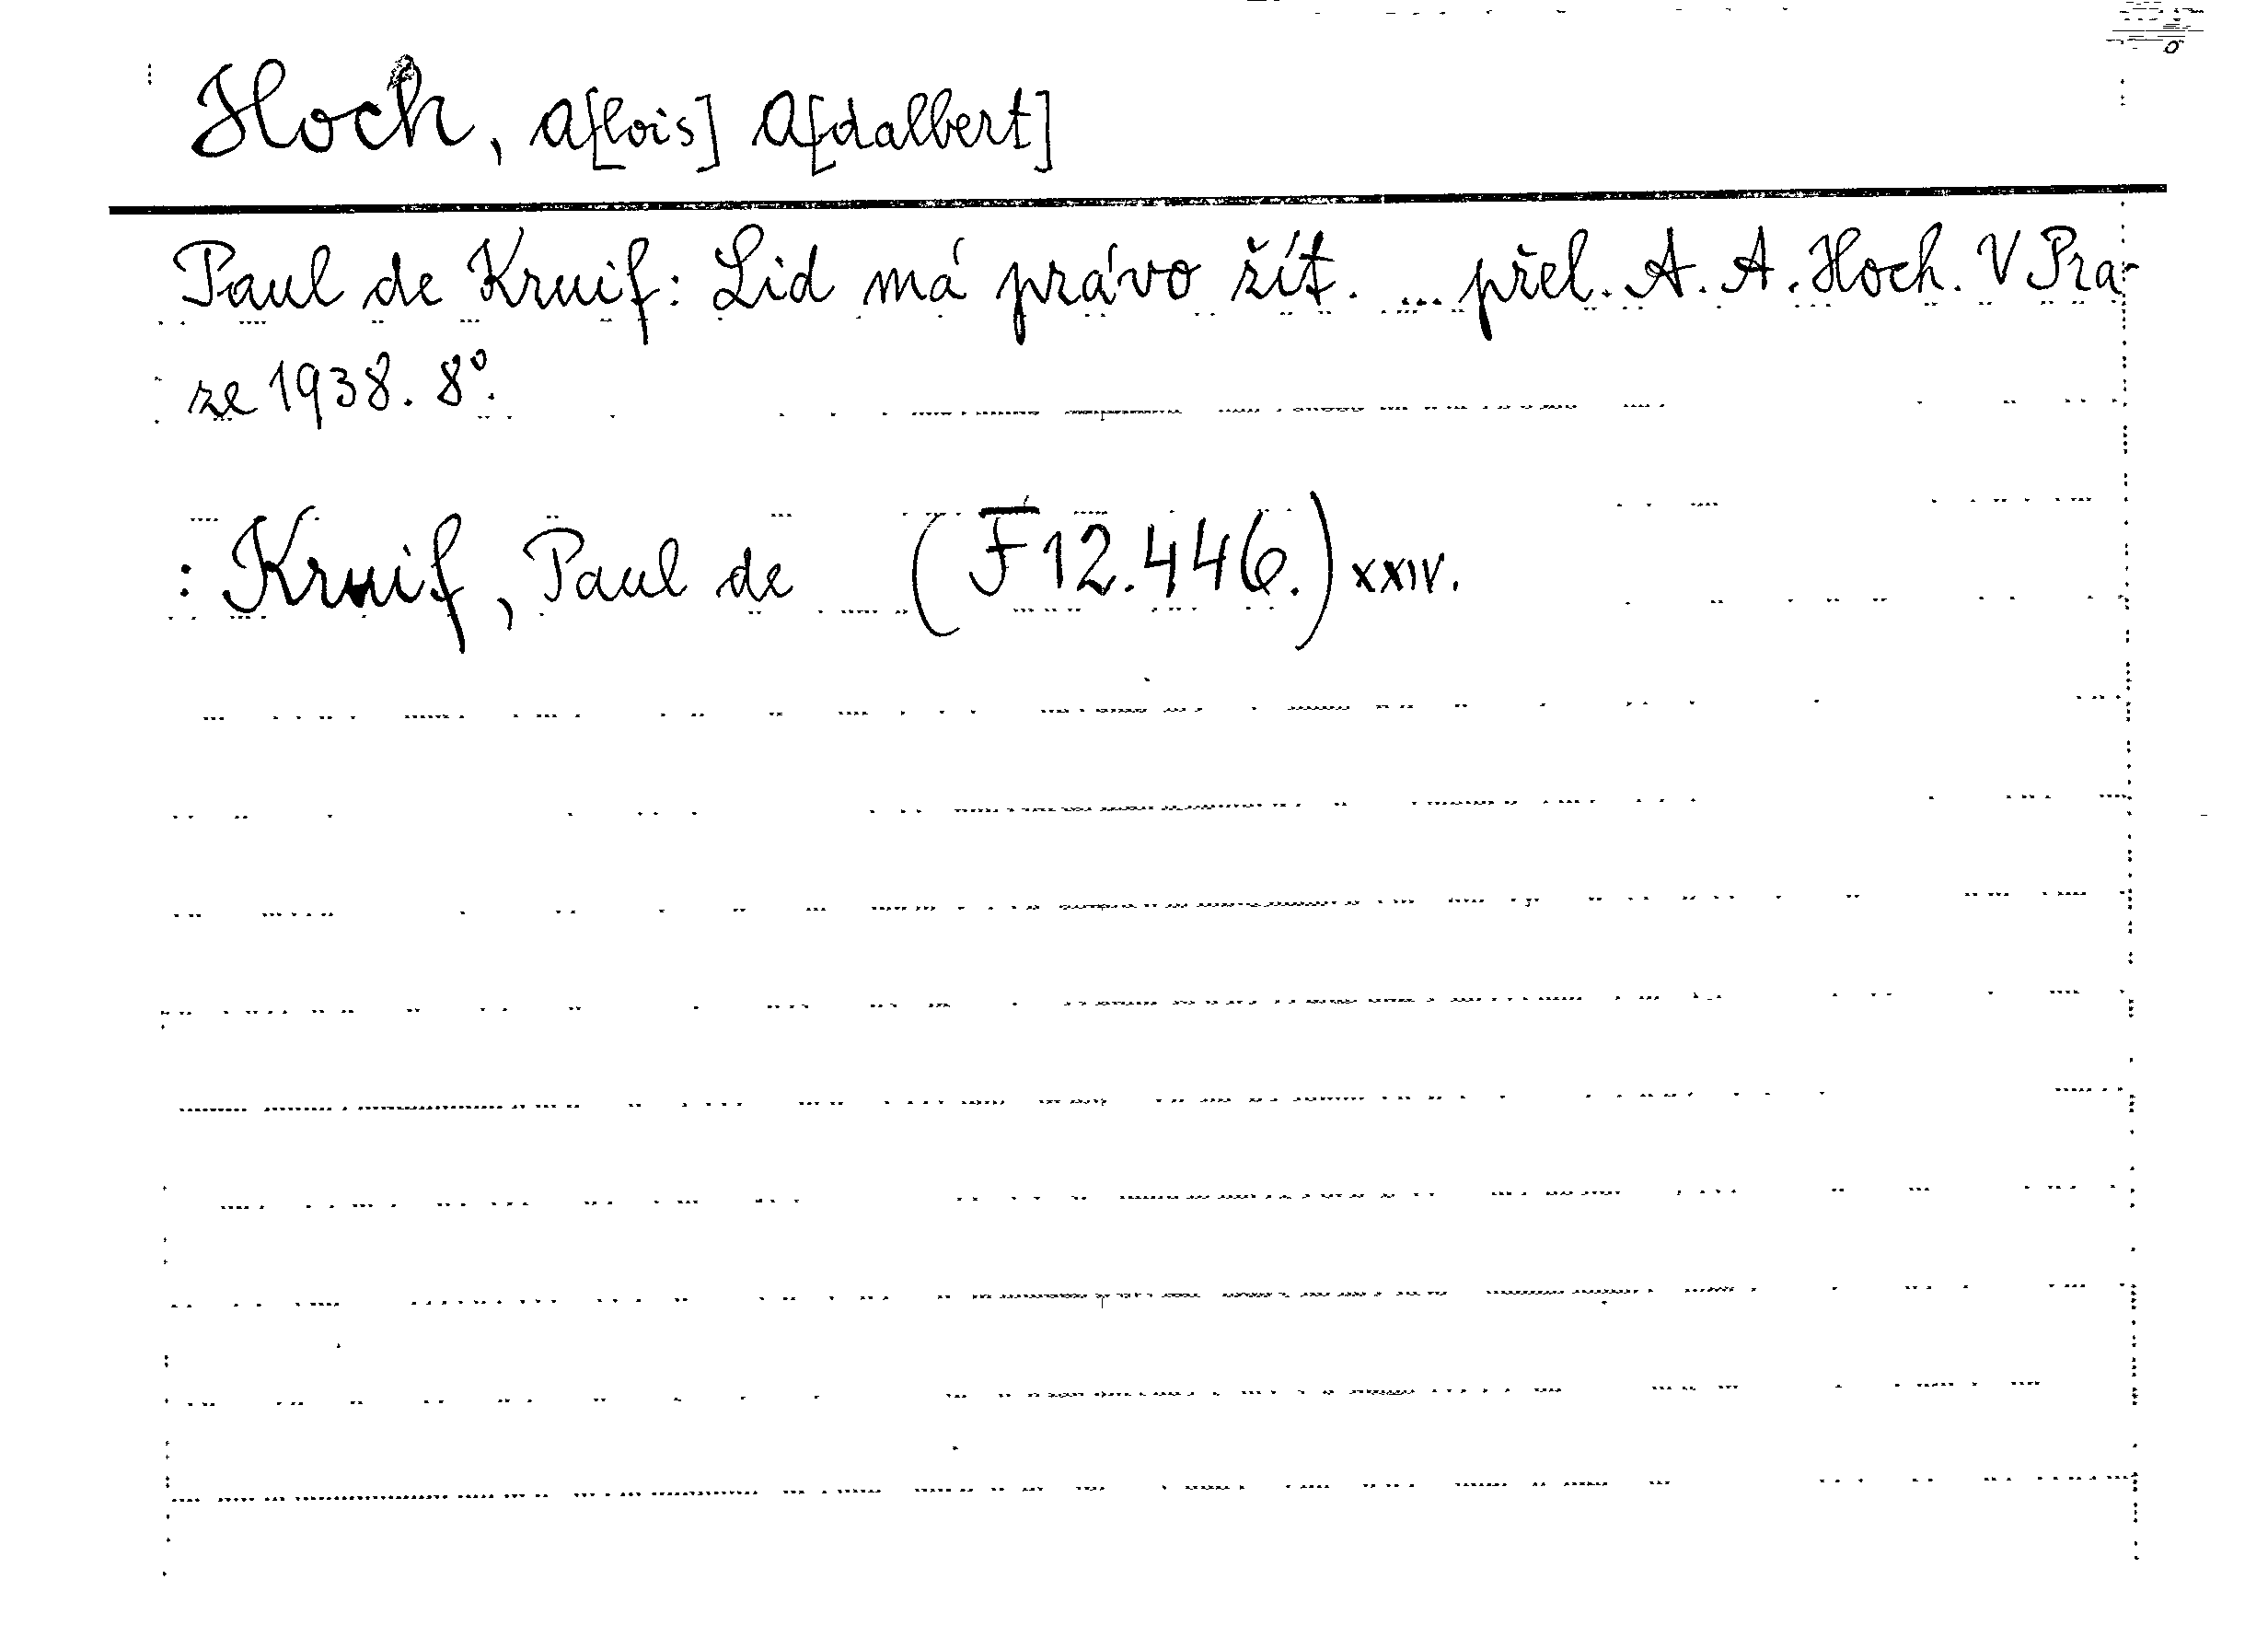 Hoch, A[lois] A[dalbert]
Paul de Kruif: Lid má právo žít. ... přel. A. A. Hoch. V Pra-
ze 1938. 8°.
: Kruif, Paul de (F 12.446.) XXIV.